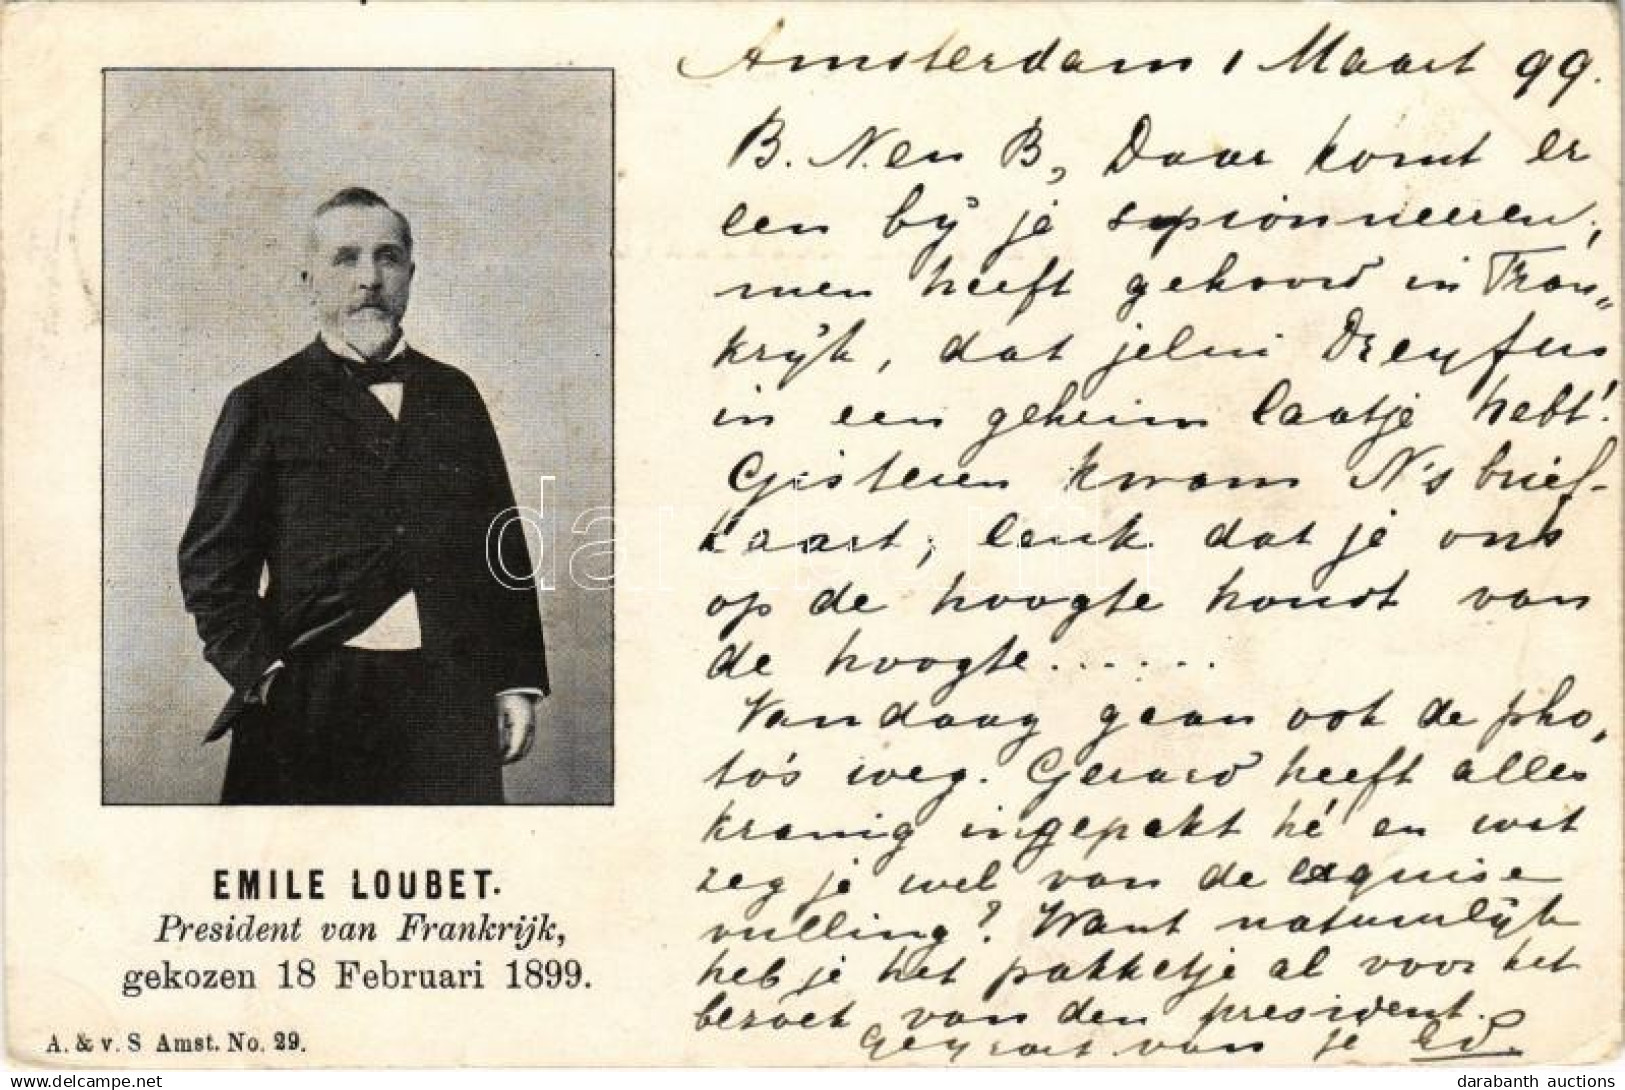 Amsterdam 1 Maart 99.
B. N. en B, Daar komt er
een bij je spionneeren,
men heeft gehoord in Fran„
krijk, dat jelui Dreyfus
in een geheim laatje hebt!
Gisteren kwam N's brief-
kaart, leuk dat je ons
op de hoogte houdt van
de hoogte......
Vandaag gaan ook de pho„
to's weg. Gerard heeft alles
kranig ingepakt hé en wat
zeg je wel van de exquise
vulling? Want natuurlijk
heb je het pakketje al voor het
bezoek van den president.
van je Ed.
EMILE LOUBET.
President van Frankrijk,
gekozen 18 Februari 1899.
A. & v. S Amst. No. 29.
darabanth
darabanth auctions